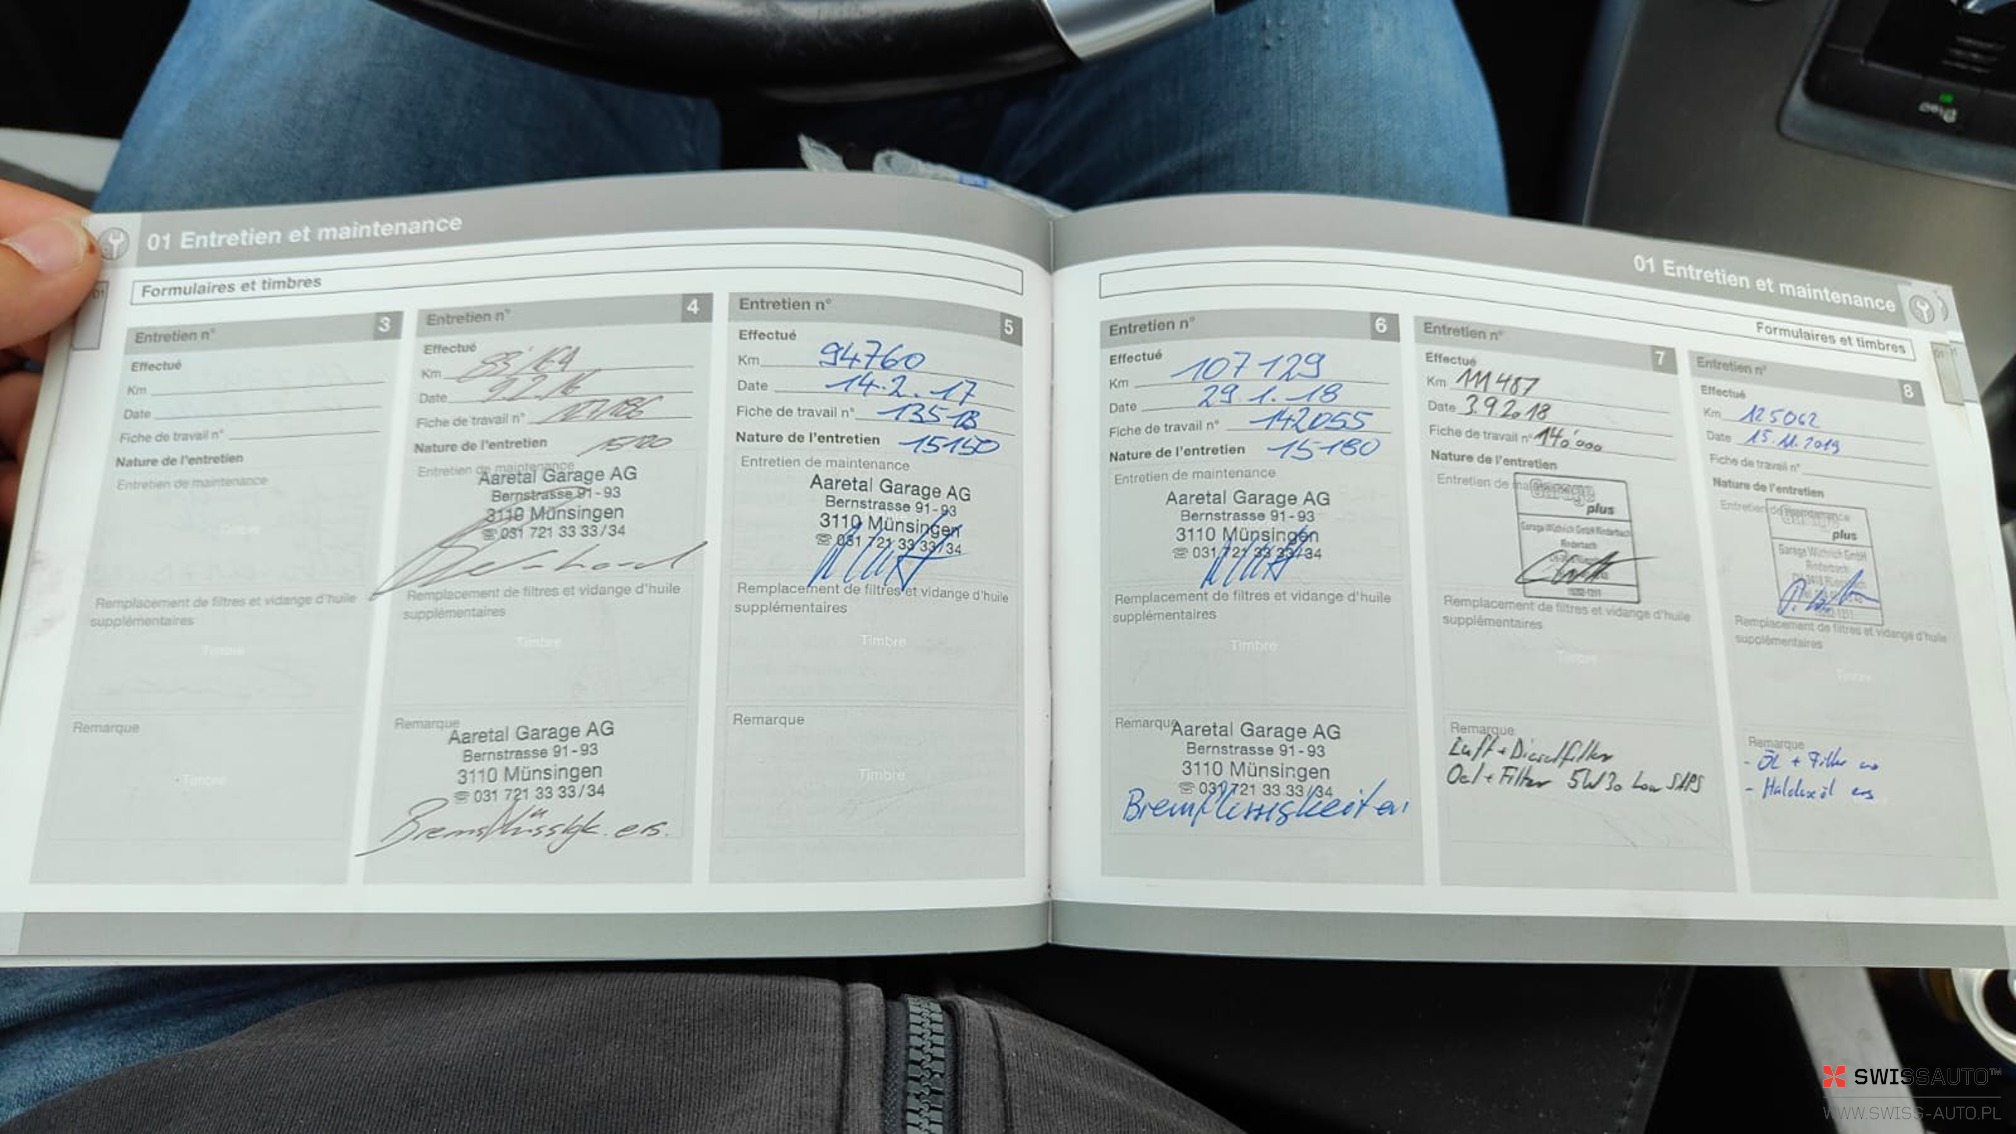 01 Entretien et maintenance
Formulaires et timbres
Entretien n° 3
Effectué
Km
Date
Fiche de travail n°
Nature de l'entretien
Entretien de maintenance
Timbre
Remplacement de filtres et vidange d'huile
supplémentaires
Timbre
Remarque
Timbre
Entretien n° 4
Effectué
Km
Date
Fiche de travail n°
Nature de l'entretien
Entretien de maintenance
Aaretal Garage AG
Bernstrasse 91-93
3110 Münsingen
☏ 031 721 33 33/34
Remplacement de filtres et vidange d'huile
supplémentaires
Timbre
Remarque
Aaretal Garage AG
Bernstrasse 91-93
3110 Münsingen
☏ 031 721 33 33/34
Bremsflüssigk. ers.
Entretien n° 5
Effectué
Km 94760
Date 14.2.17
Fiche de travail n°
Nature de l'entretien 15150
Entretien de maintenance
Aaretal Garage AG
Bernstrasse 91-93
3110 Münsingen
☏ 031 721 33 33/34
Remplacement de filtres et vidange d'huile
supplémentaires
Timbre
Remarque
Timbre
01 Entretien et maintenance
Formulaires et timbres
Entretien n° 6
Effectué
Km 107129
Date 29.1.18
Fiche de travail n° 142055
Nature de l'entretien 15180
Entretien de maintenance
Aaretal Garage AG
Bernstrasse 91-93
3110 Münsingen
☏ 031 721 33 33/34
Remplacement de filtres et vidange d'huile
supplémentaires
Timbre
Remarque
Aaretal Garage AG
Bernstrasse 91-93
3110 Münsingen
☏ 031 721 33 33/34
Entretien n° 7
Effectué
Km 111487
Date 3.9.2018
Fiche de travail n° 140'000
Nature de l'entretien
Entretien de
Garage
plus
Remplacement de filtres et vidange d'huile
supplémentaires
Timbre
Remarque
Luft + Dieselfilter
Oel + Filter 5W30 Low SAPS
Entretien n° 8
Effectué
Km 125062
Date 15.11.2019
Fiche de travail n°
Nature de l'entretien
Entretien de maintenance
plus
Remplacement de filtres et vidange d'huile
supplémentaires
Timbre
Remarque
- Öl + Filter
- Haldexöl ers
SWISSAUTO™
WWW.SWISS-AUTO.PL